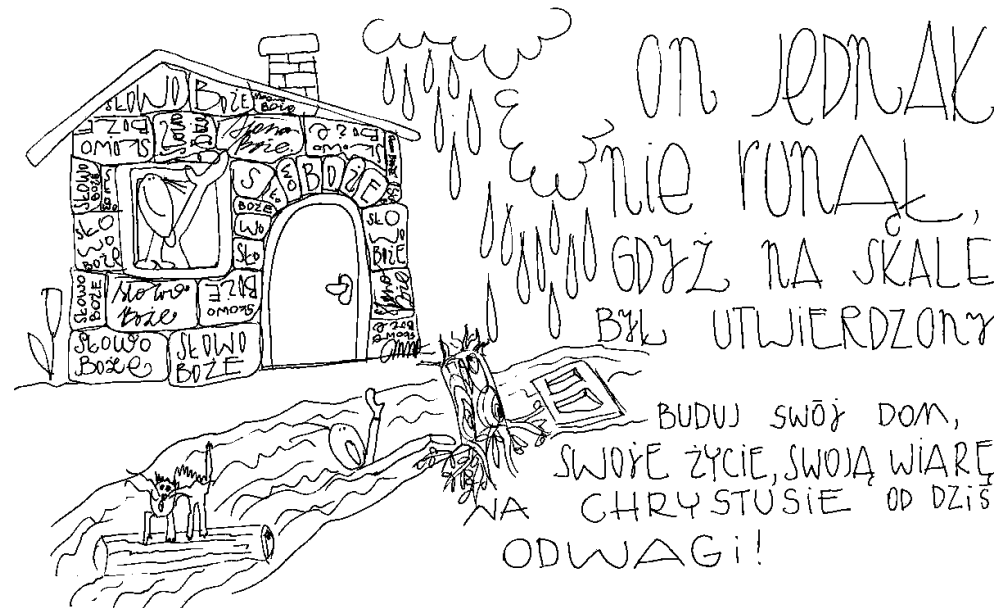 SŁOWO BOŻE
SŁOWO BOŻE
SŁOWO BOŻE
SŁOWO BOŻE
Słowo Boże
SŁOWO BOŻE
SŁOWO BOŻE
SŁOWO BOŻE
SŁOWO BOŻE
SŁOWO BOŻE
Słowo Boże
SŁOWO BOŻE
SŁOWO BOŻE
SŁOWO BOŻE
ON JEDNAK
nie runĄŁ,
GDYŻ NA SKALE
BYŁ UTWIERDZONY
BUDUJ SWÓJ DOM,
SWOJE ŻYCIE, SWOJĄ WIARĘ
NA CHRYSTUSIE OD DZIŚ
ODWAGi!